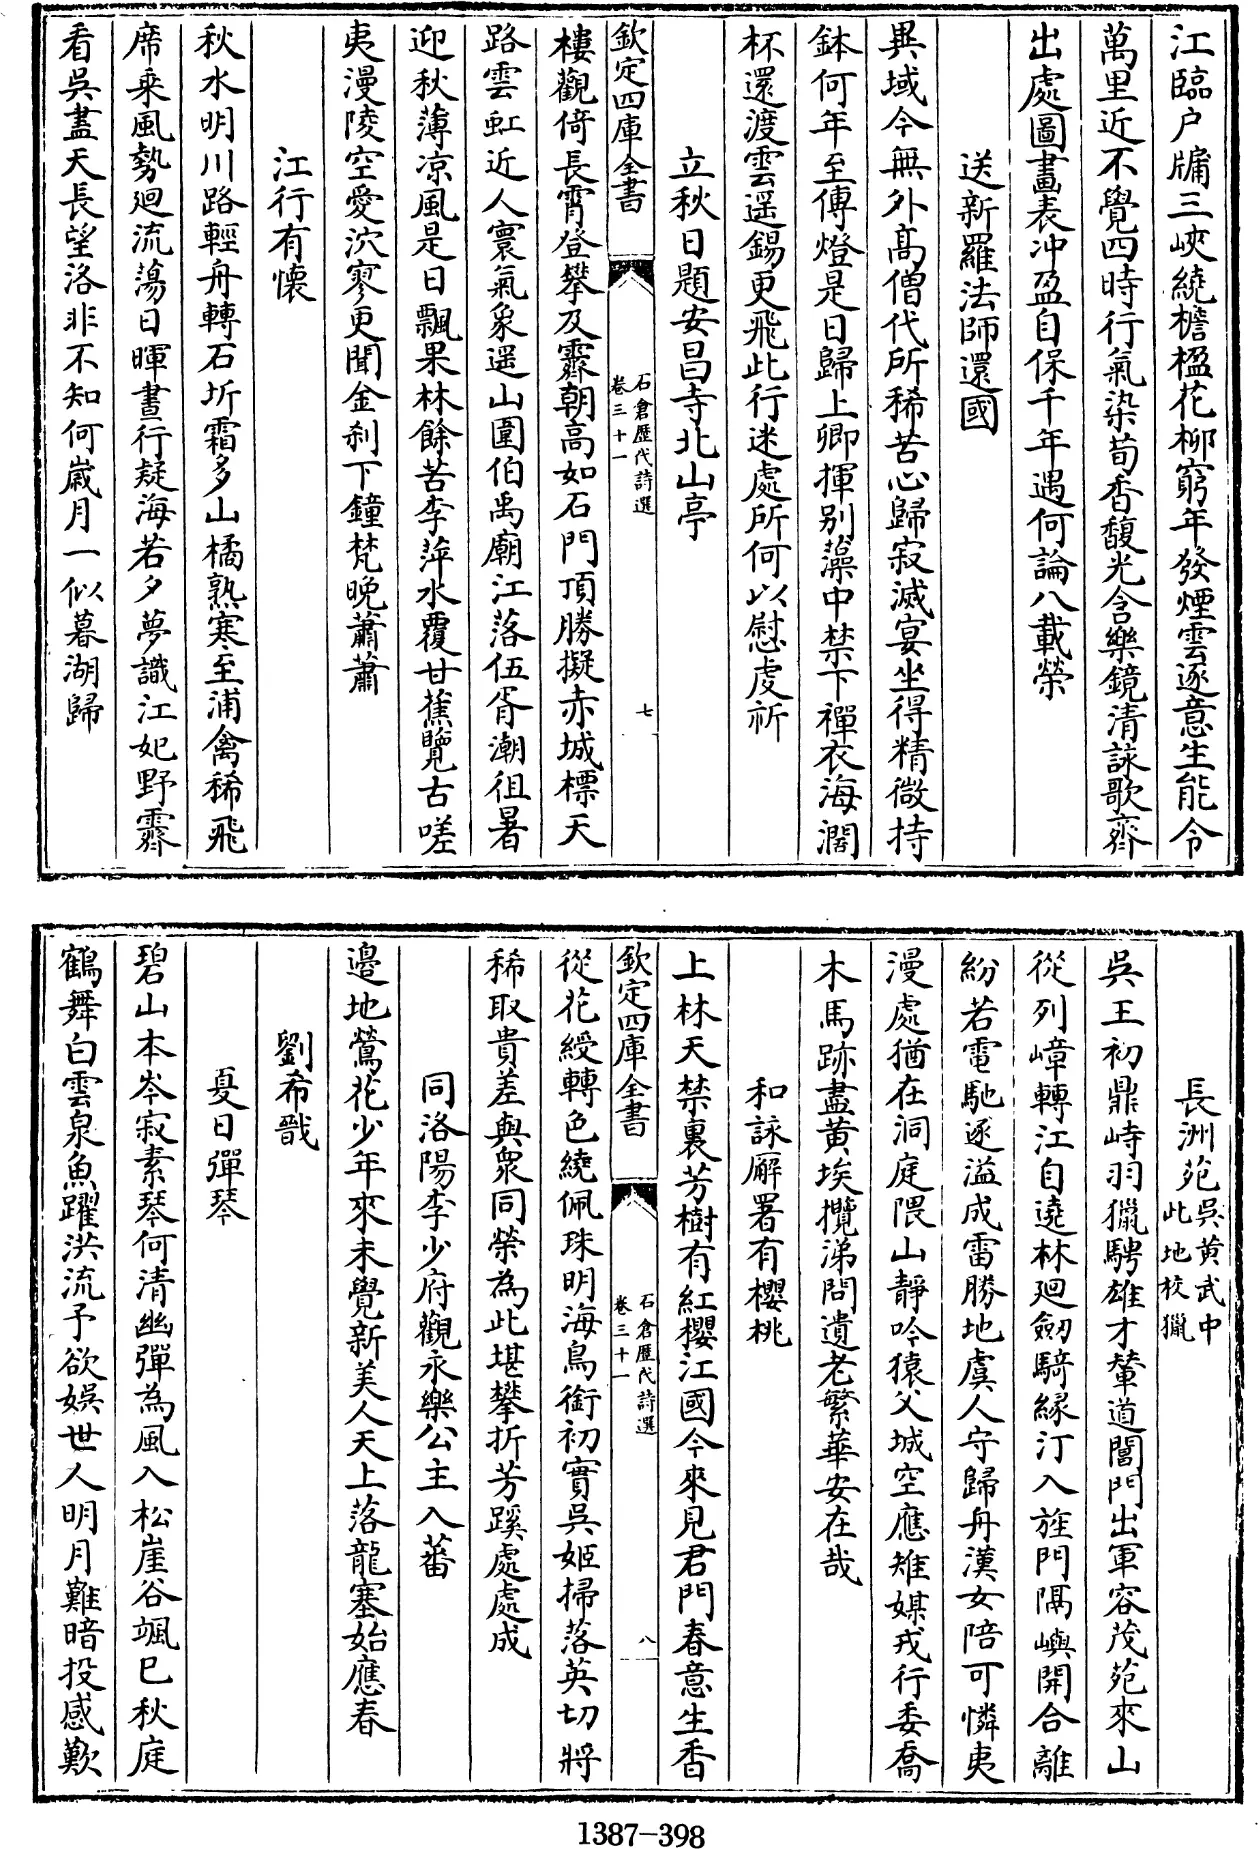 江臨户牖三峽繞檐楹花柳窮年發煙雲逐意生能令
萬里近不覺四時行氣染荀香馥光含樂鏡清詠歌齊
出處圖畫表冲盈自保千年遇何論八載榮
送新羅法師還國
異域今無外高僧代所稀苦心歸寂滅宴坐得精微持
鉢何年至傳燈是日歸上卿揮别藻中禁下禪衣海濶
杯還渡雲遥錫更飛此行迷處所何以慰虔祈
立秋日題安昌寺北山亭
欽定四庫全書
石倉歷代詩選
卷三十一
七
樓觀倚長霄登攀及霽朝高如石門頂勝擬赤城標天
路雲虹近人寰氣象遥山圍伯禹廟江落伍胥潮徂暑
迎秋薄凉風是日飄果林餘苦李萍水覆甘蕉覽古嗟
夷漫陵空愛泬寥更聞金刹下鐘梵晚蕭蕭
江行有懷
秋水明川路輕舟轉石圻霜多山橘熟寒至浦禽稀飛
席乘風勢廻流蕩日暉晝行疑海若夕夢識江妃野霽
看吳盡天長望洛非不知何歲月一似暮湖歸
長洲苑吳黄武中
此地校獵
吳王初鼎峙羽獵騁雄才輦道閶門出軍容茂苑來山
從列嶂轉江自遶林廻劒騎緣汀入旌門隔嶼開合離
紛若電馳逐溢成雷勝地虞人守歸舟漢女陪可憐夷
漫處猶在洞庭隈山靜吟猿父城空應雉媒戎行委喬
木馬跡盡黄埃攬涕問遺老繁華安在哉
和詠廨署有櫻桃
上林天禁裏芳樹有紅櫻江國今來見君門春意生香
欽定四庫全書
石倉歷代詩選
卷三十一
八
從花綬轉色繞佩珠明海鳥銜初實吳姬掃落英切將
稀取貴差與衆同榮為此堪攀折芳蹊處處成
同洛陽李少府觀永樂公主入蕃
邊地鶯花少年來未覺新美人天上落龍塞始應春
劉希戩
夏日彈琴
碧山本岑寂素琴何清幽彈為風入松崖谷颯巳秋庭
鶴舞白雲泉魚躍洪流予欲娛世人明月難暗投感歎
1387-398